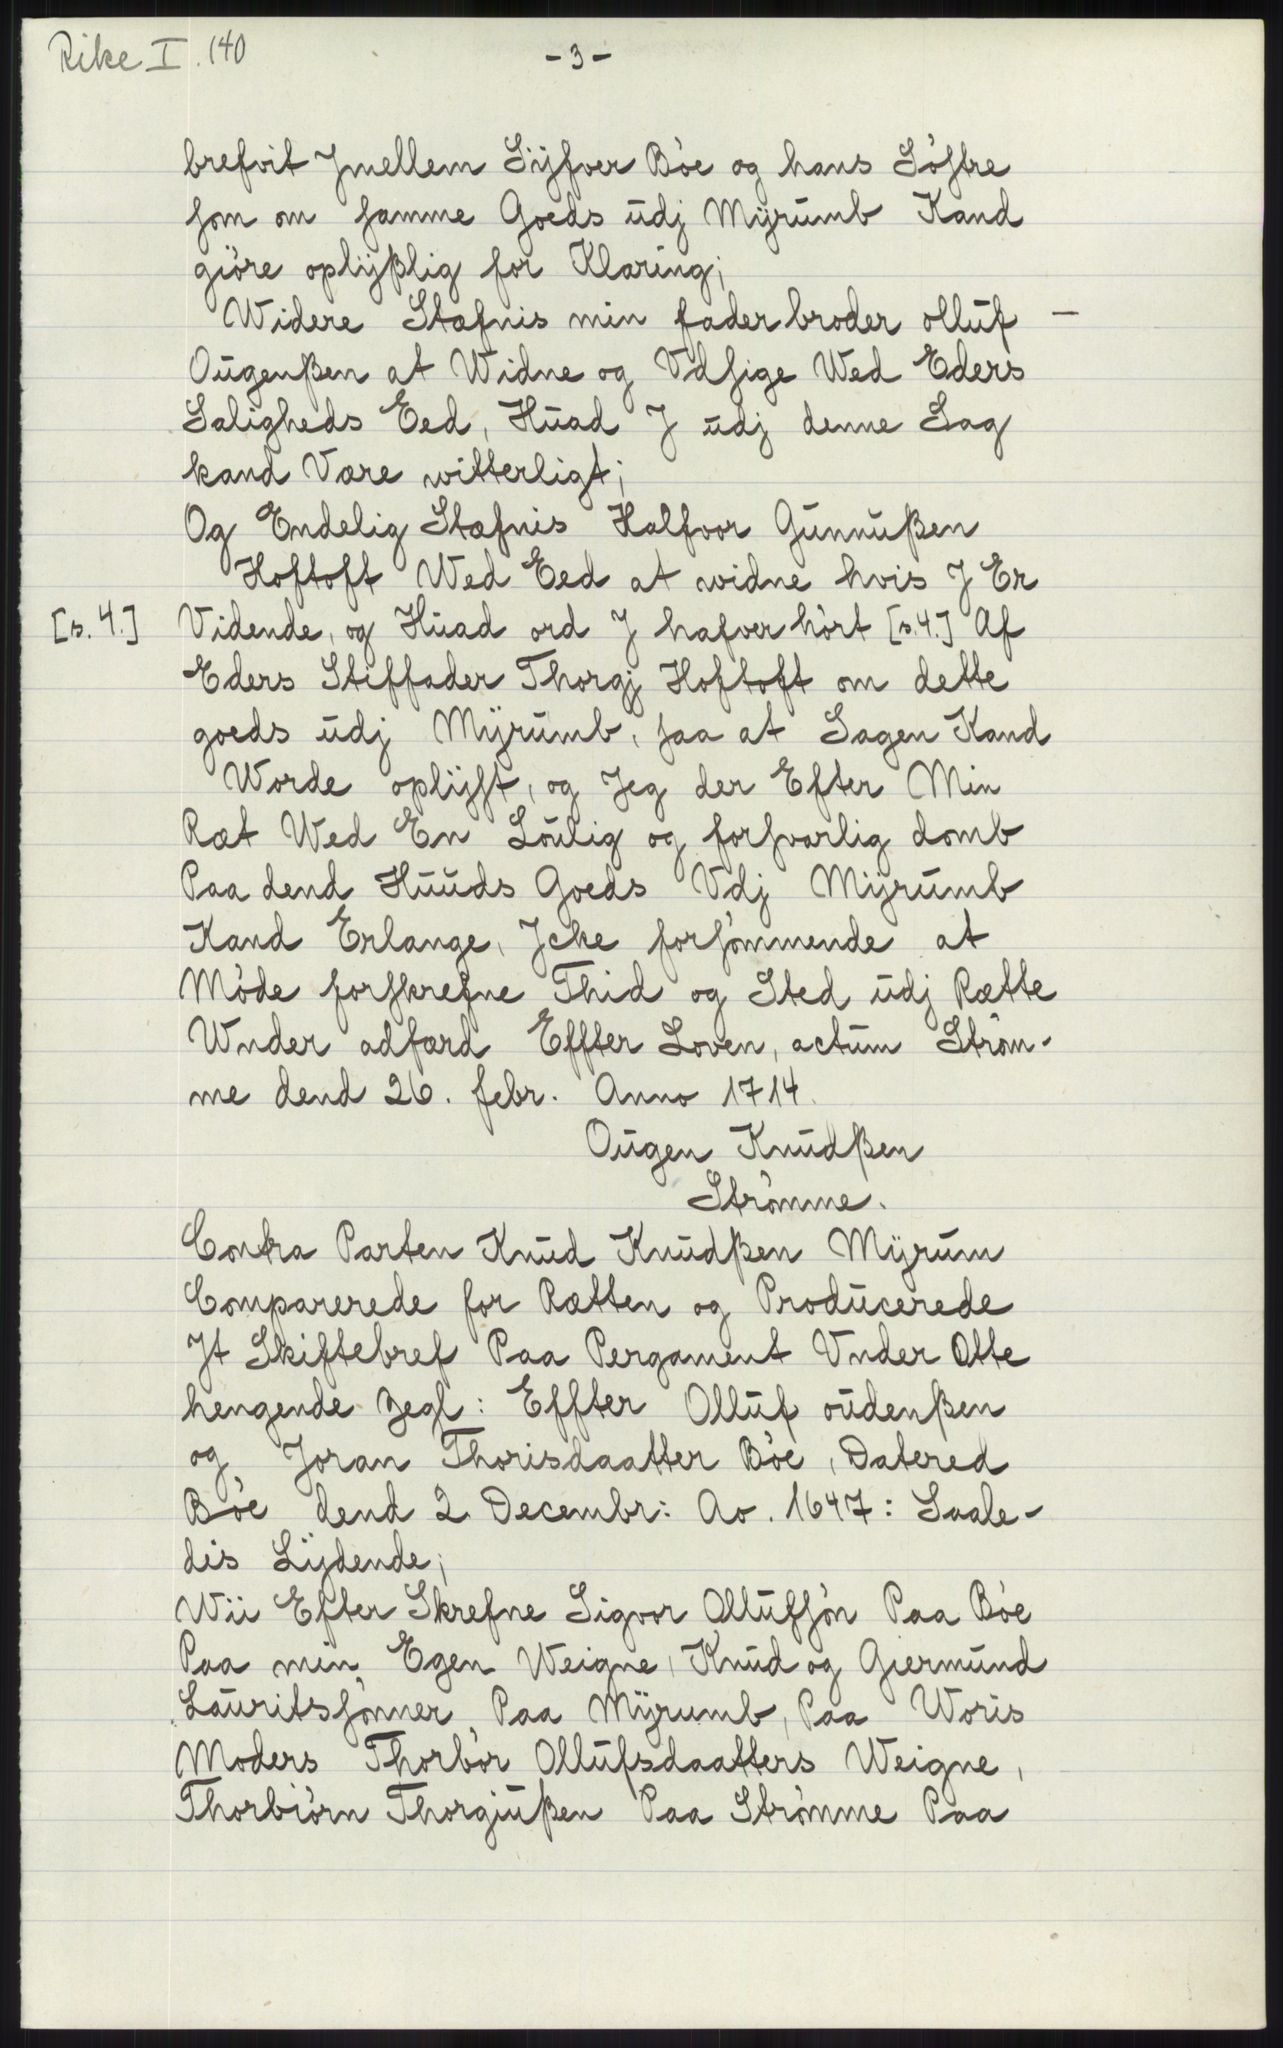 Rike I. 140
- 3 -
brefvit Jmellem Sÿfver Böe og hans Söſtre
ſom om ſamme Goeds udj Mÿrumb Kand
giöre oplÿßlig for Klaring;
Widere Stæfnis min fader broder olluf —
Ougenßen at Widne og Vdſige Wed Eders
Saligheds Eed, Huad J udj denne Sag
kand Være witterligt;
Og Endelig Stæfnis Halfvor Gunnußen
Hoftoft Wed Eed at widne hvis J Er
[s. 4.] Vidende, og Huad ord J hafver hört [s. 4.] Af
Eders Stiffader Thorgj Hoftoft om dette
goeds udj Mÿrumb, ſaa at Sagen Kand
Worde oplÿſt, og Jeg der Efter Min
Ræt Wed En Loulig og forſvarlig domb
Paa dend Huuds Goeds Vdj Mÿrumb
Kand Erlange, Jcke forſömmende at
Möde forſkrefne Thid og Sted udj Rætte
Wnder adfærd Effter Loven, actum Ström-
me dend 26. febr. Anno 1714.
Ougen Knudßen
Strömme.
Contra Parten Knud Knudßen Mÿrum
Comparerede for Rætten og Producerede
Jt Skiftebref Paa Pergament Vnder Otte
hengende Zegl: Effter Olluf oudenßen
og Joran Thorisdaatter Böe, Datered
Böe dend 2 Decembr: Ao. 1647: Saale-
dis Lÿdende;
Wii Efter Skrefne Sigvor Ollufſön Paa Böe
Paa min Egen Weigne, Knud og Giermund
Lauritsſönner Paa Mÿrumb, Paa Woris
Moders Thorbör Ollufsdaatters Weigne,
Thorbiörn Thorgiußen Paa Strömme Paa